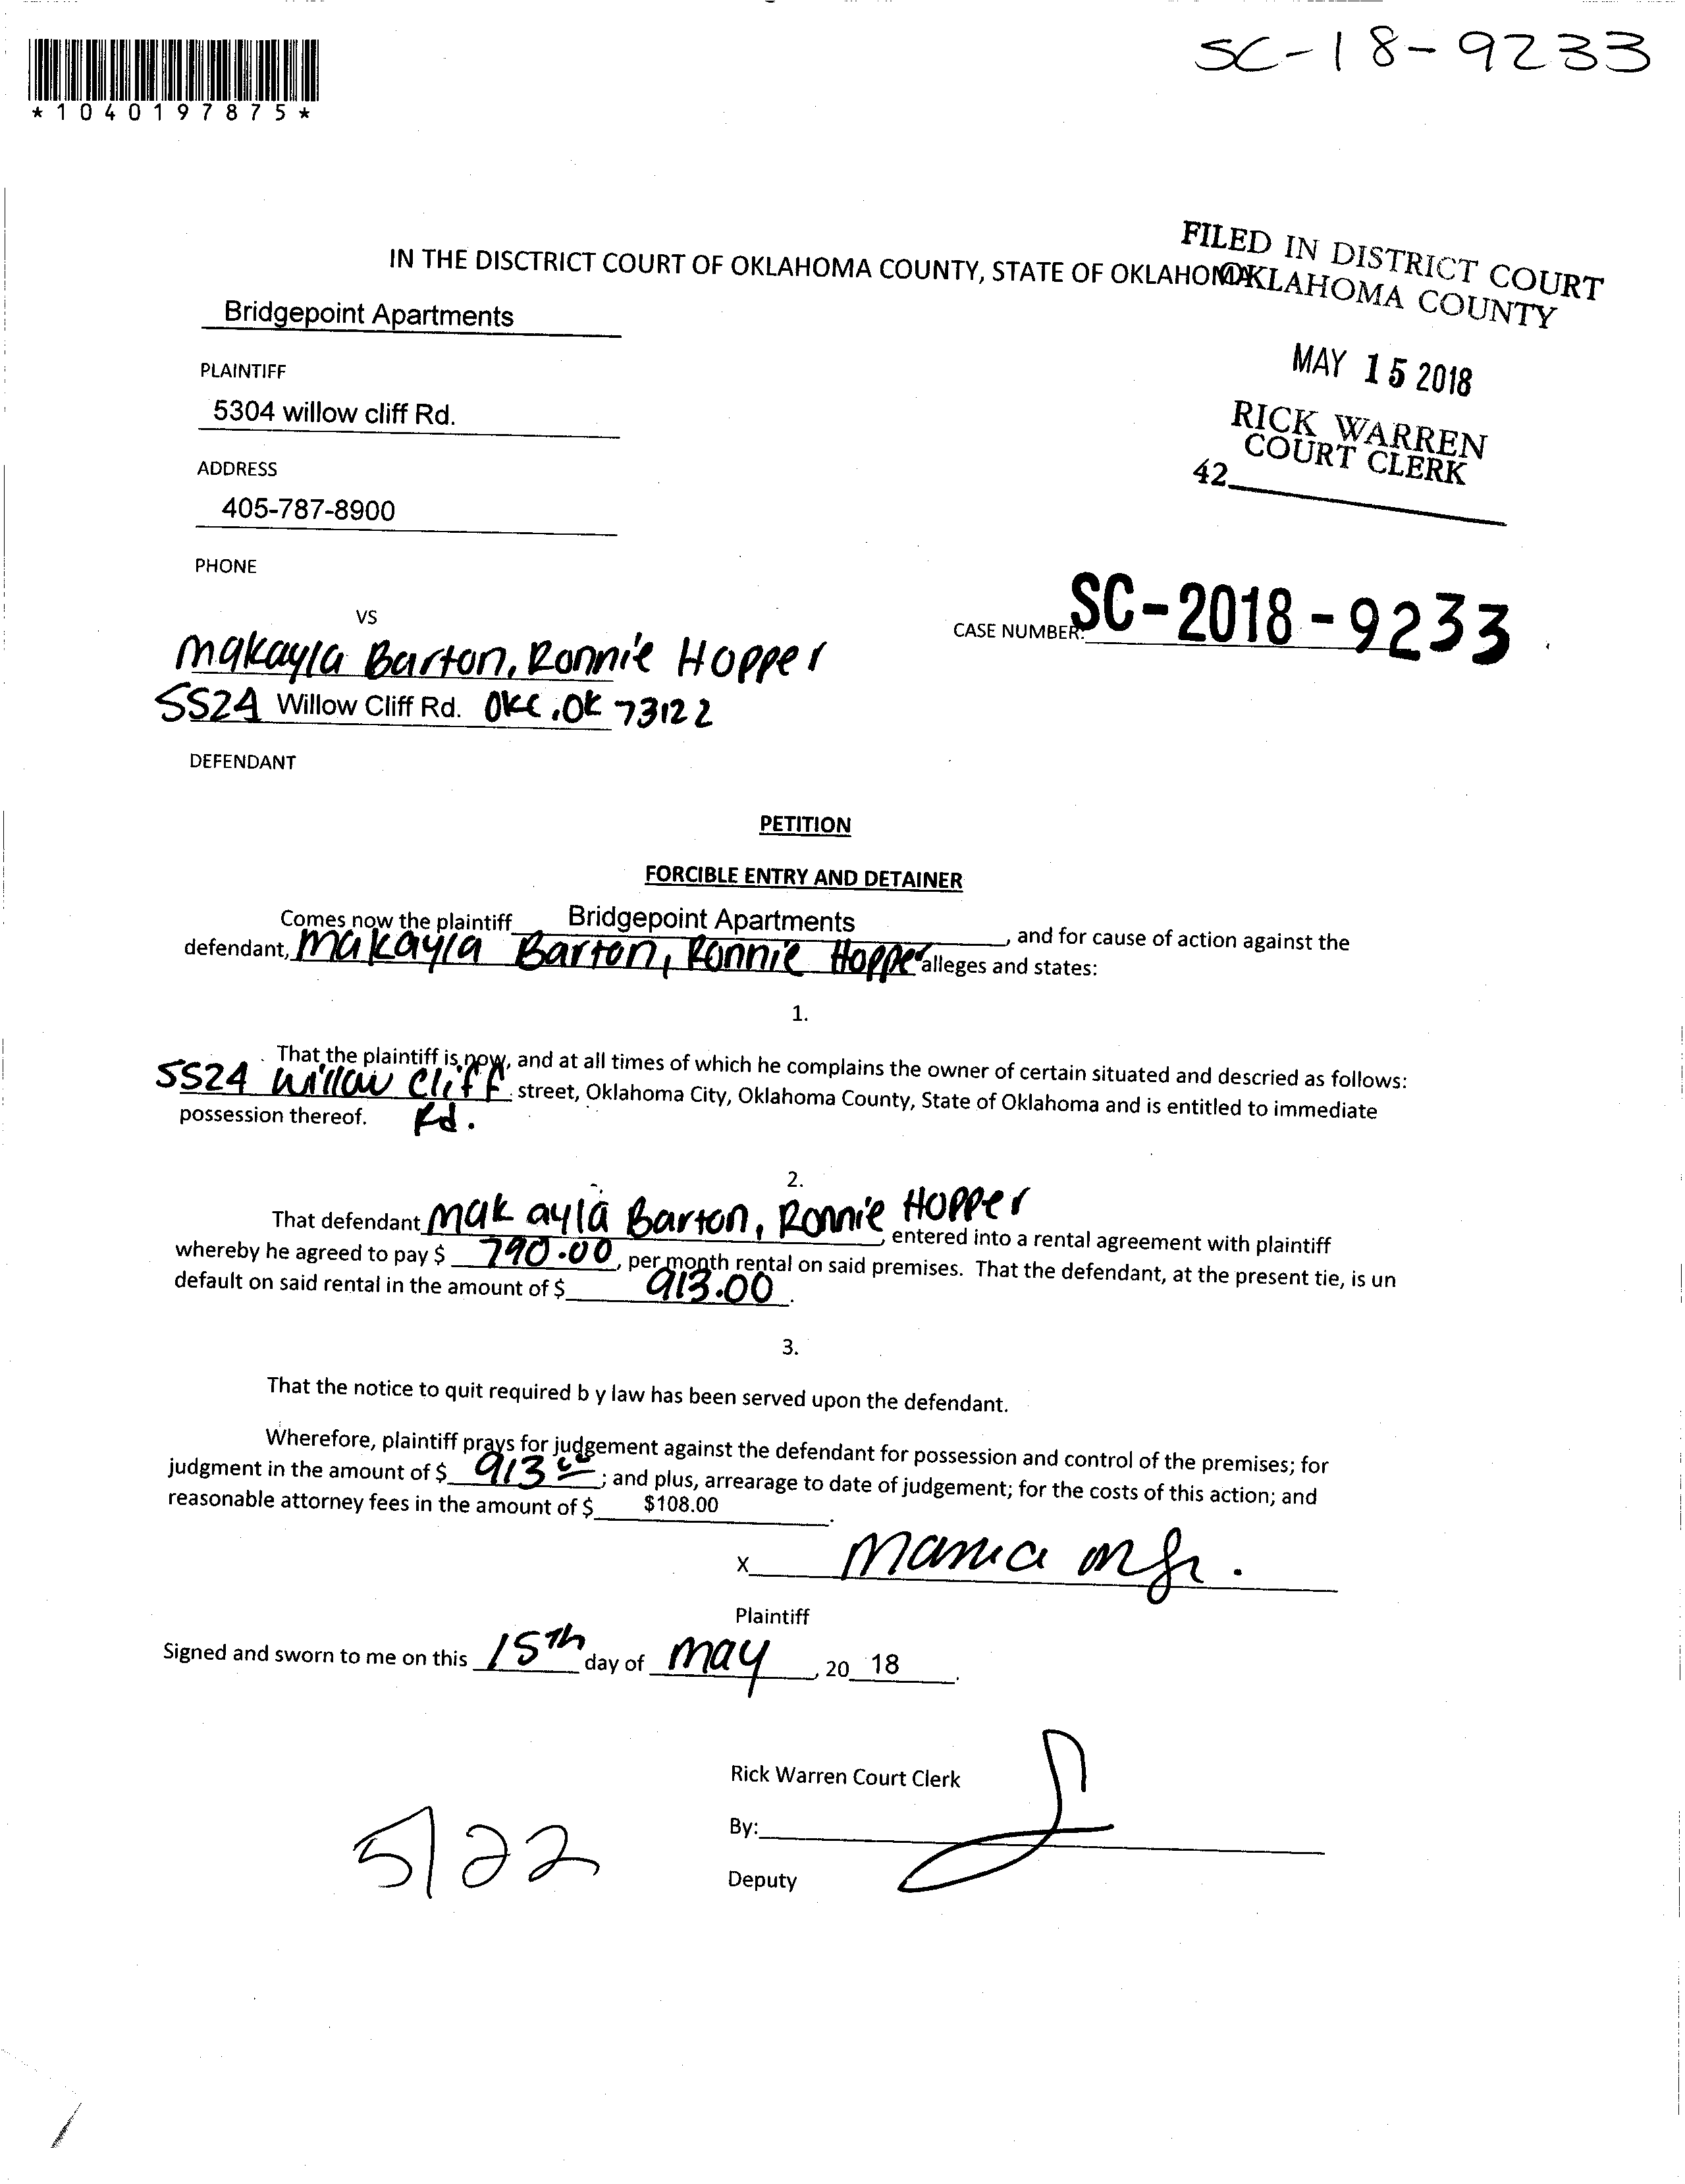 SC-18-9233
*1040197875*
FILED IN DISTRICT COURT
OKLAHOMA COUNTY
IN THE DISCTRICT COURT OF OKLAHOMA COUNTY, STATE OF OKLAHOMA
Bridgepoint Apartments
MAY 15 2018
PLAINTIFF
5304 willow cliff Rd.
RICK WARREN
COURT CLERK
ADDRESS
42
405-787-8900
PHONE
VS
CASE NUMBER: SC-2018-9233
Makayla Barton, Ronnie Hopper
5524 Willow Cliff Rd. OKC, OK 73122
DEFENDANT
PETITION
FORCIBLE ENTRY AND DETAINER
Comes now the plaintiff Bridgepoint Apartments, and for cause of action against the
defendant, Makayla Barton, Ronnie Hopper alleges and states:
1.
That the plaintiff is now, and at all times of which he complains the owner of certain situated and descried as follows:
5524 Willow Cliff street, Oklahoma City, Oklahoma County, State of Oklahoma and is entitled to immediate
possession thereof. Rd.
2.
That defendant Makayla Barton, Ronnie Hopper, entered into a rental agreement with plaintiff
whereby he agreed to pay $ 790.00, per month rental on said premises. That the defendant, at the present tie, is un
default on said rental in the amount of $ 913.00.
3.
That the notice to quit required b y law has been served upon the defendant.
Wherefore, plaintiff prays for judgement against the defendant for possession and control of the premises; for
judgment in the amount of $ 913 00; and plus, arrearage to date of judgement; for the costs of this action; and
reasonable attorney fees in the amount of $ $108.00.
X mgr.
Plaintiff
Signed and sworn to me on this 15th day of May, 20 18.
Rick Warren Court Clerk
By:
Deputy
5/22